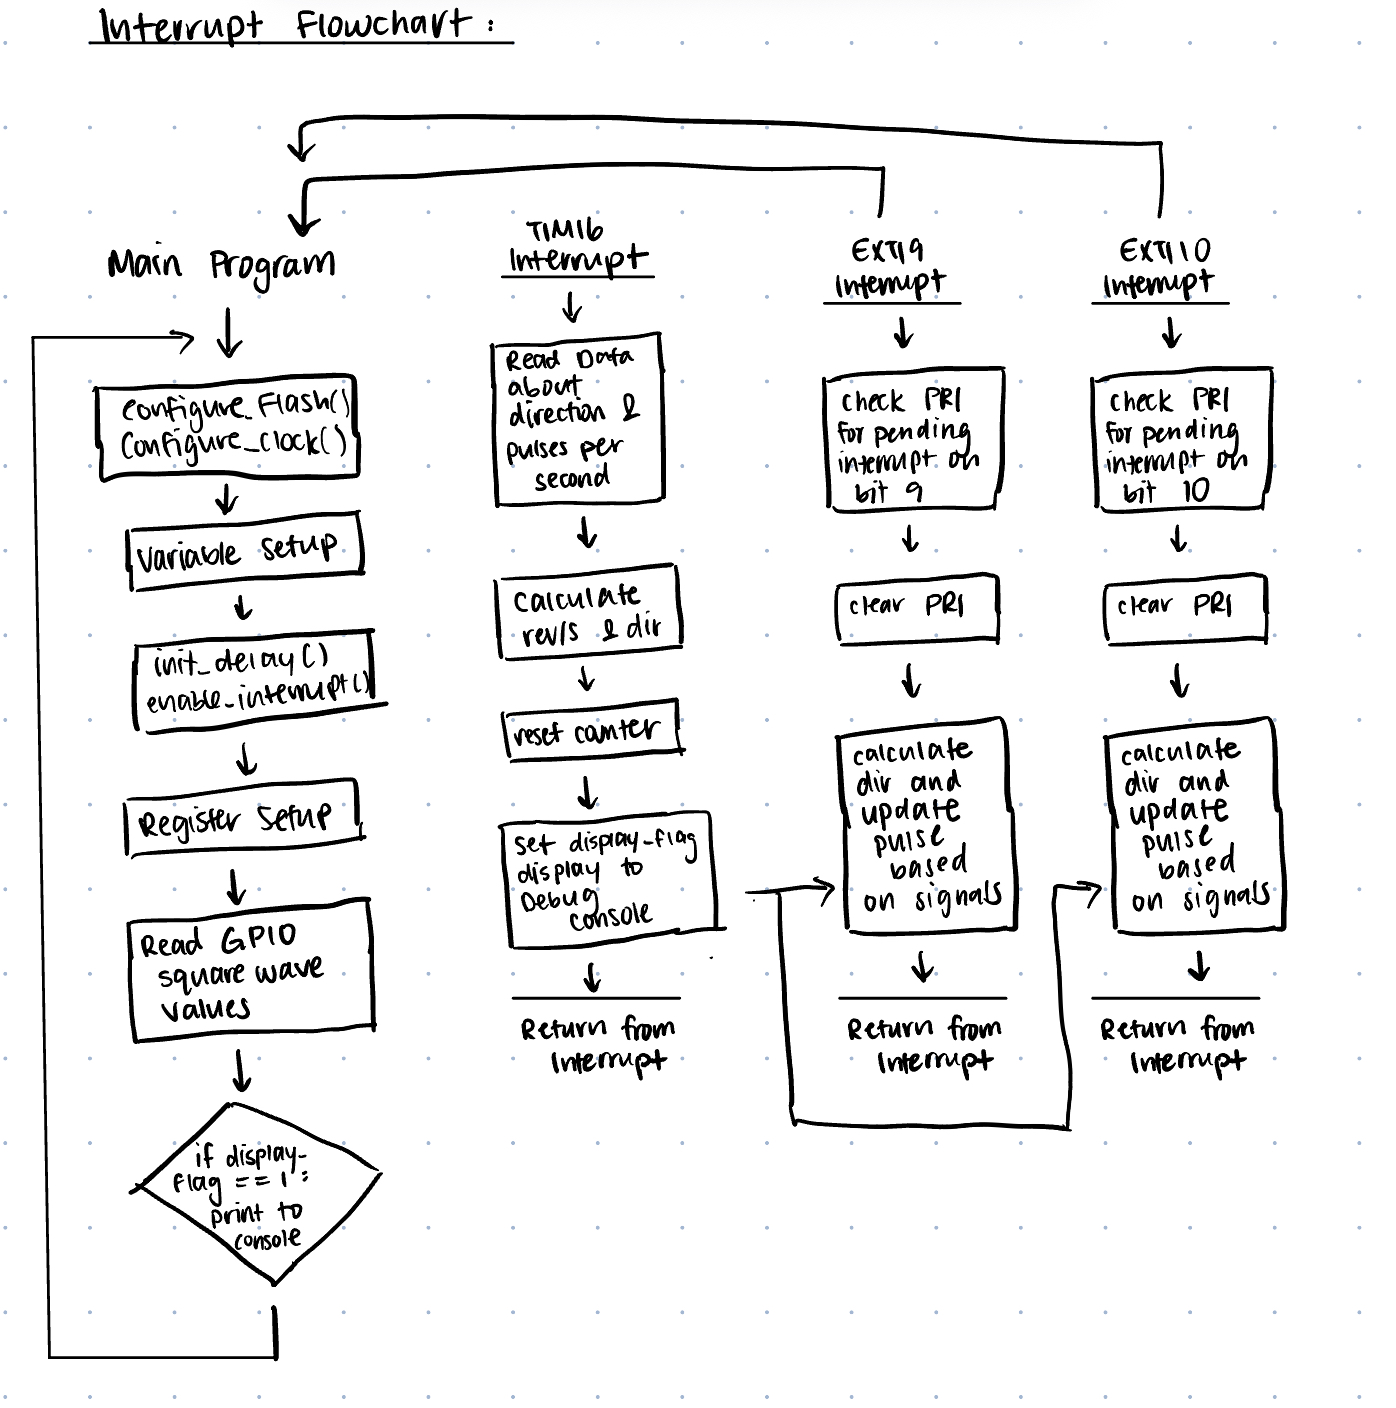 Interrupt Flowchart:
Main Program
configure_Flash()
Configure_Clock()
Variable Setup
init_delay()
enable_interrupt()
Register Setup
Read GPIO
square wave
values
if display_
flag == 1:
print to
console
TIM16
Interrupt
Read Data
about
direction &
pulses per
second
Calculate
rev/s & dir
reset counter
Set display_flag
display to
Debug
console
Return from
Interrupt
EXTI9
Interrupt
check PR1
for pending
interrupt on
bit 9
clear PR1
calculate
dir and
update
pulse
based
on signals
Return from
Interrupt
EXTI10
Interrupt
check PR1
for pending
interrupt on
bit 10
clear PR1
calculate
dir and
update
pulse
based
on signals
Return from
Interrupt